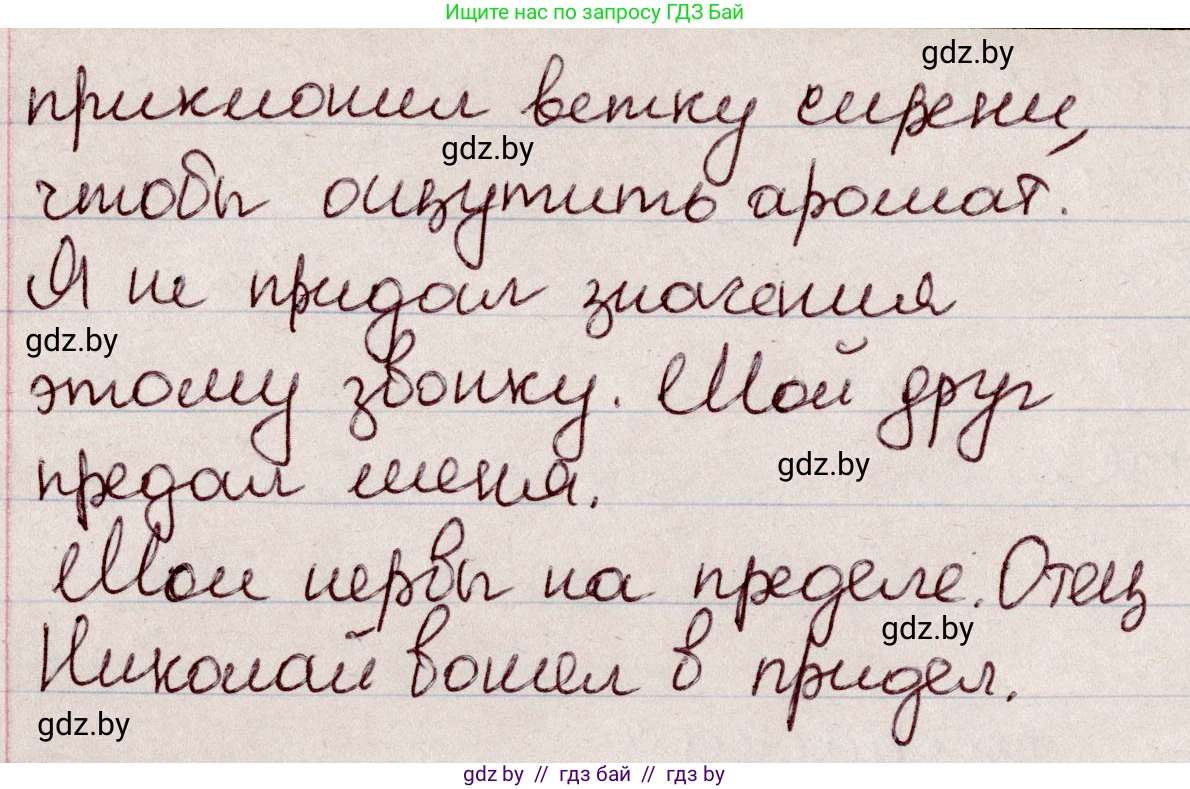 Ищите нас по запросу ГДЗ Бай
gdz.by
приклонил ветку сирени,
gdz.by
чтобы ощутить аромат.
Я не придал значения
gdz.by
этому звонку. Мой друг
gdz.by
предал меня.
Мои нервы на пределе. Отец
gdz.by
Николай вошел в придел.
gdz.by
gdz by // гдз бай // гдз by